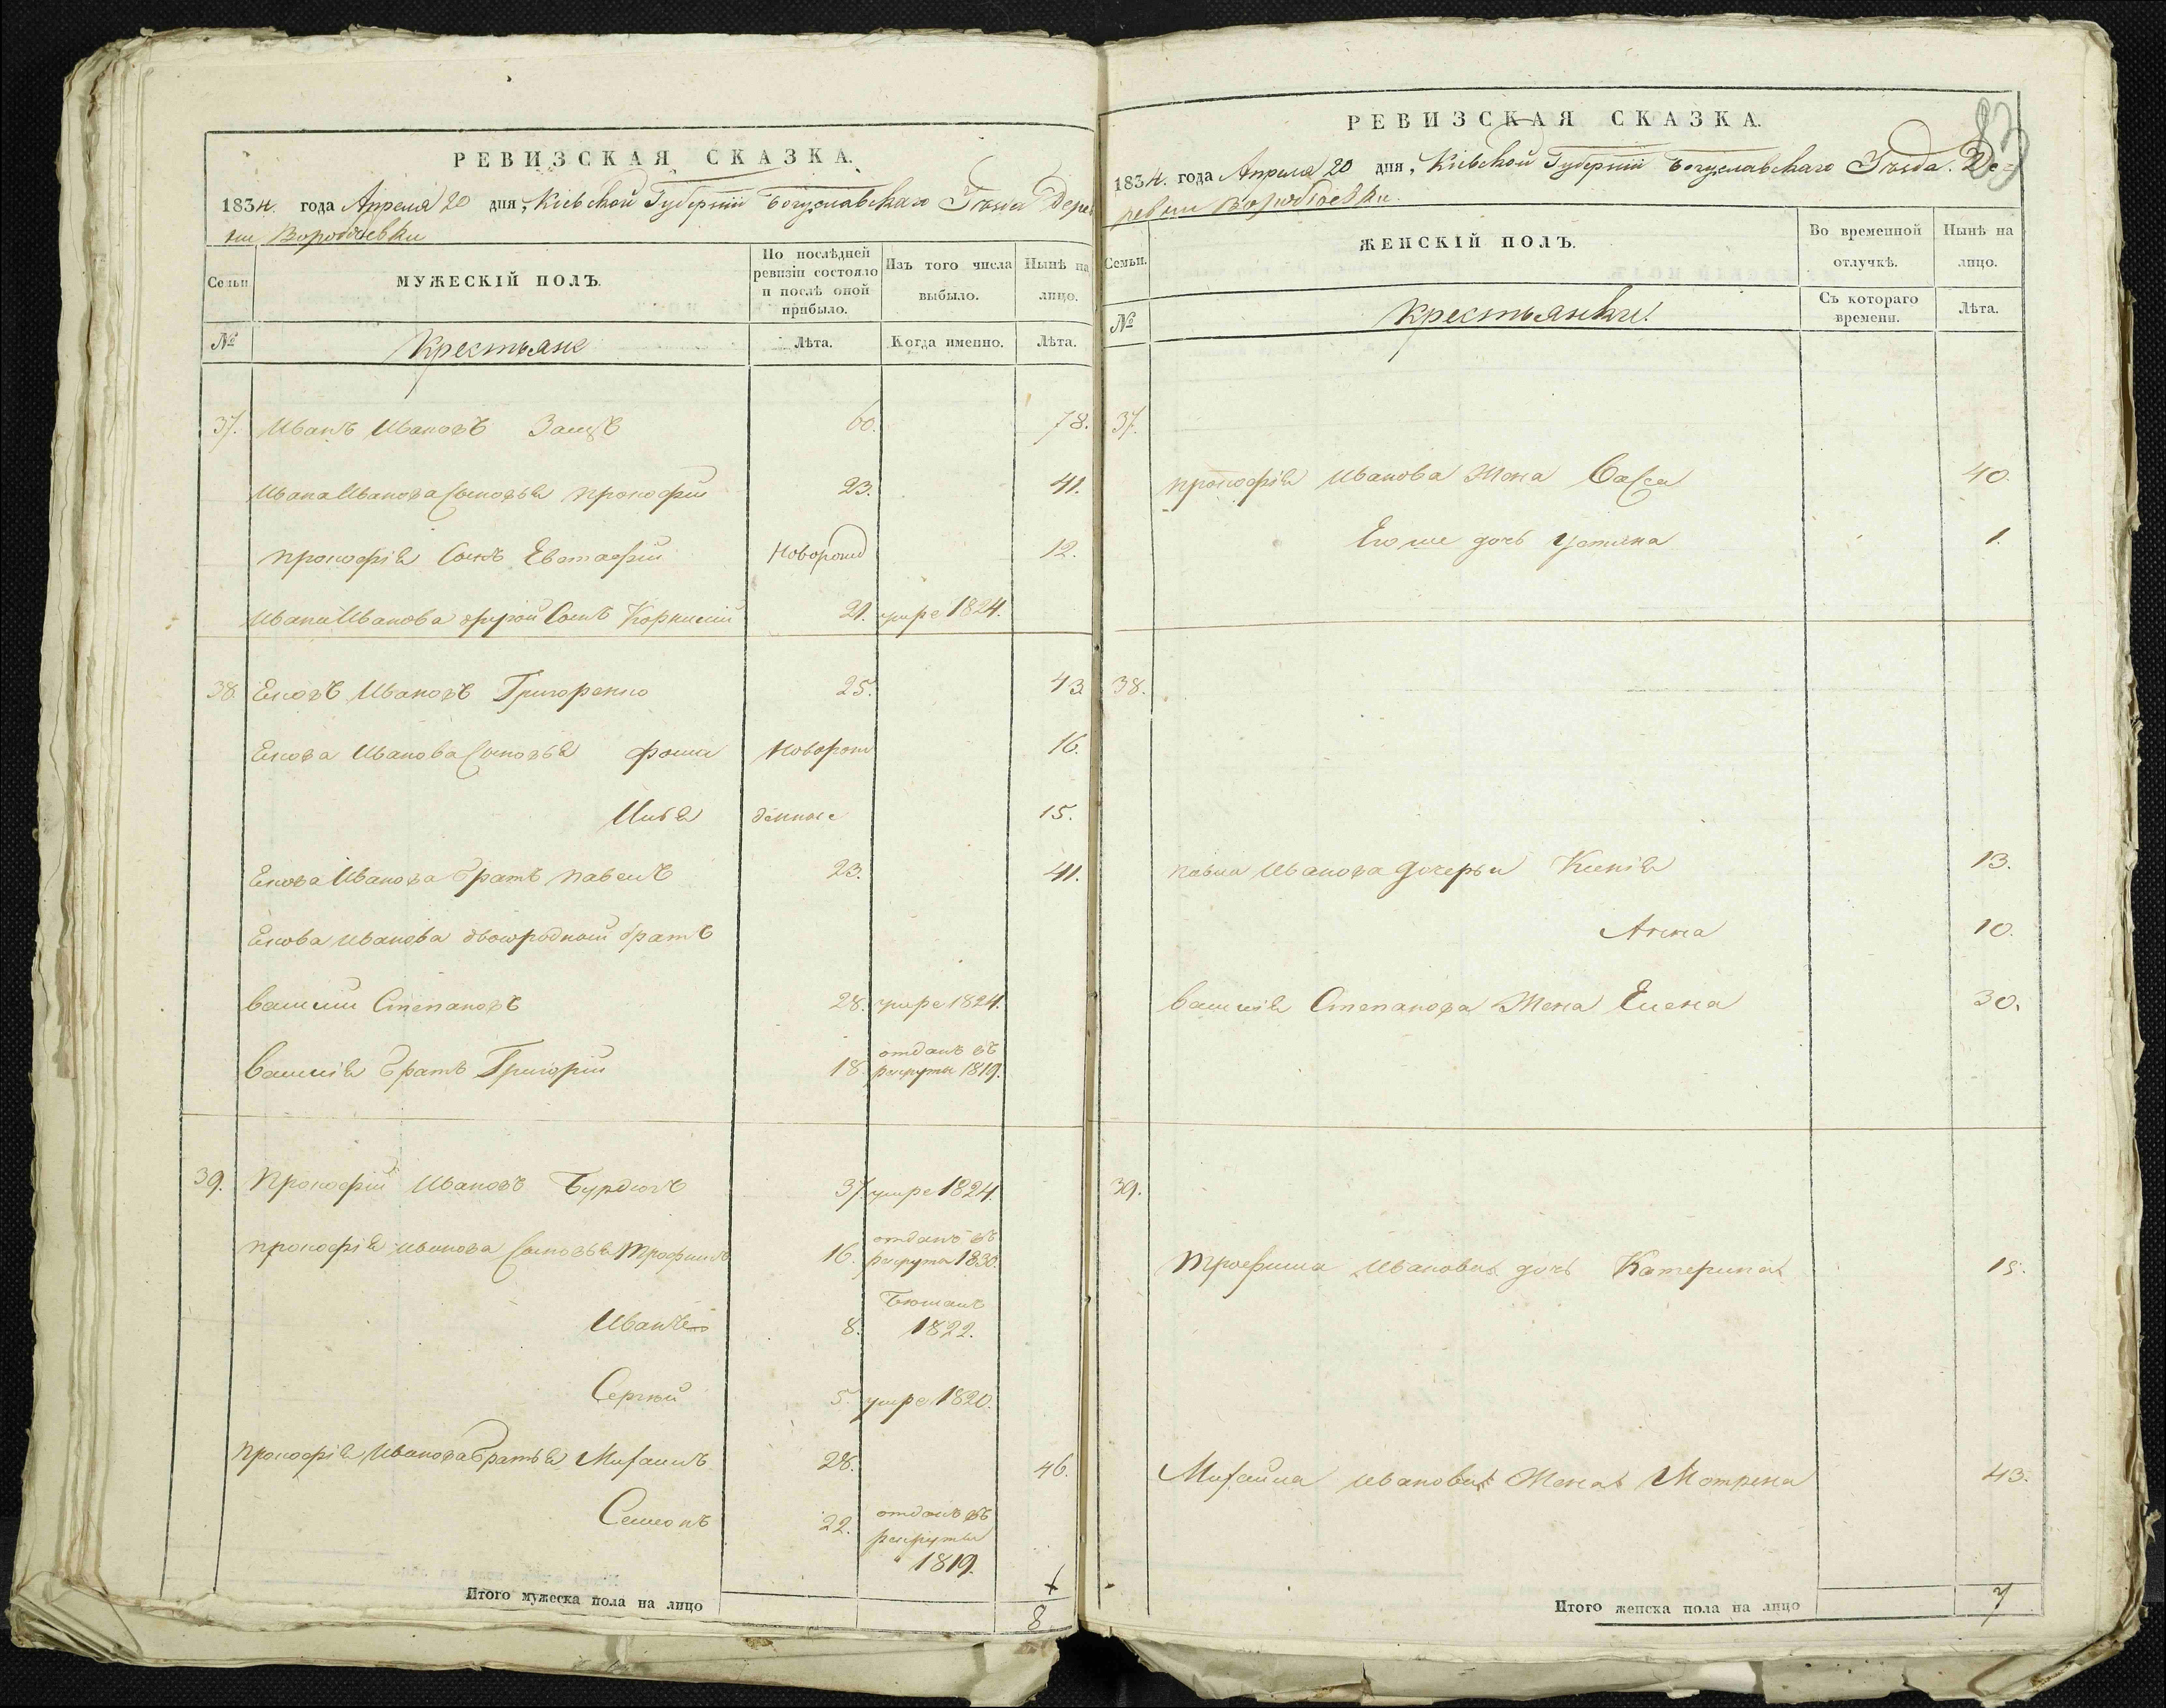 РЕВИЗСКАЯ СКАЗКА.
1834. года Апреля 20 дня, Кіевской Губерніи Богуславскаго Уѣзда Дерев
ни Воробіевки
Семьи. МУЖЕСКІЙ ПОЛЪ. По послѣдней ревизіи состояло и послѣ оной прибыло. Изъ того числа выбыло. Нынѣ на лицо.
№ Крестьяне Лѣта. Когда именно. Лѣта.
37. Иванъ Ивановъ 60. 78.
Ивана Иванова Сыновья Прокофій 23. 41.
Прокофія Сынъ Евстафій Новорожд 12.
Ивана Иванова другой Сынъ Корнилий 21. умре 1824.
38. Яковъ Ивановъ Григоренко 25. 43
Якова Иванова Сыновья Фома Новорож 16.
Илья денные 15.
Якова Иванова Братъ Павелъ 23. 41.
Якова Иванова двоюродный братъ
Василий Степановъ 28. умре 1824.
Василія Братъ Григорій 18. отданъ въ рекруты 1819.
39. Прокофій Ивановъ Бурдюгъ 37 умре 1824.
Прокофія Иванова Сыновья Трофимъ 16. отданъ въ рекруты 1830.
Иванъ 8. 1822.
Сергѣй 5. умре 1820.
Прокофія Иванова Братья Михаилъ 28. 46.
Семенъ 22. отданъ въ рекруты 1819.
Итого мужеска пола на лицо 8
83
РЕВИЗСКАЯ СКАЗКА.
1834. года Апреля 20 дня, Кіевской Губерніи Богуславскаго Уѣзда. Де=
ревни Воробіовки.
Семьи. ЖЕНСКІЙ ПОЛЪ. Во временной отлучкѣ. Нынѣ на лицо.
№ Крестьянки. Съ котораго времени. Лѣта.
37.
Прокофія Иванова Жена Васса 40.
Его же дочь Устина 1.
38.
Павла Иванова дочерьи Ксенія 13.
Анна 10.
Василія Степанова Жена Елена 30.
39.
Трофима Иванова дочь Катерина 15.
Михайла Иванова Жена Мотрена 43.
Итого женска пола на лицо 7